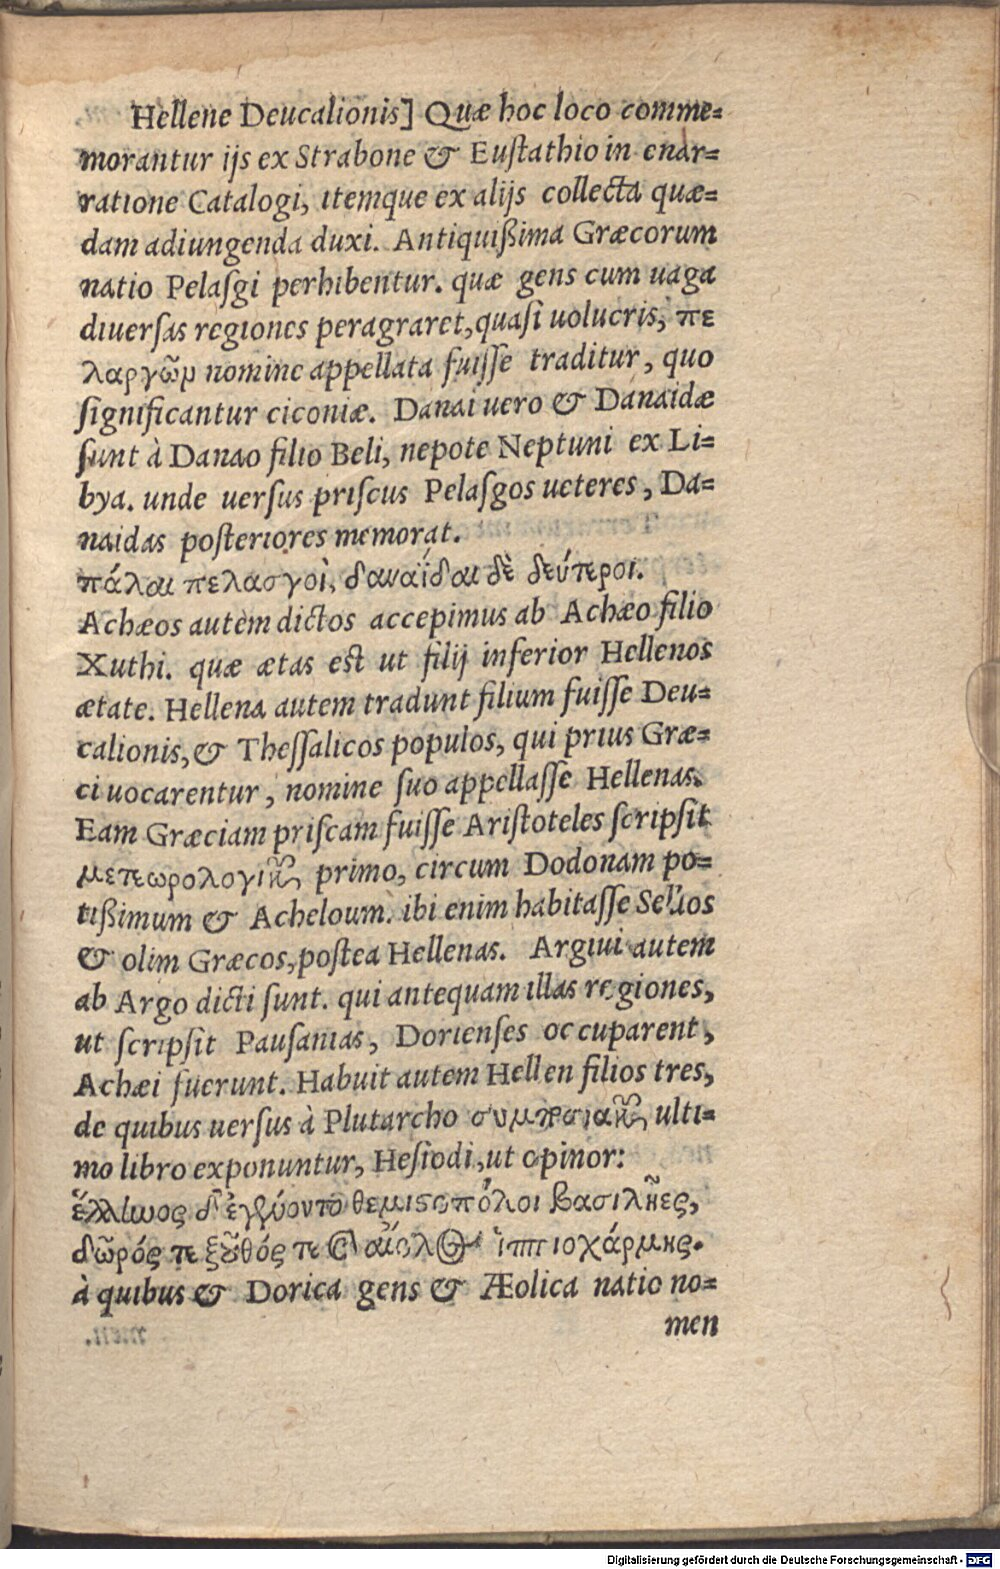 Hellene Deucalionis] Quæ hoc loco comme=
morantur ijs ex Strabone & Eustathio in enar=
ratione Catalogi, itemque ex alijs collecta quæ=
dam adiungenda duxi. Antiquißima Græcorum
natio Pelasgi perhibentur. quæ gens cum uaga
diuersas regiones peragraret, quasi uolucris, πε
λαργῶμ nomine appellata fuisse traditur, quo
significantur ciconiæ. Danai uero & Danaidæ
sunt à Danao filio Beli, nepote Neptuni ex Li=
bya. unde uersus priscus Pelasgos ueteres, Da=
naidas posteriores memorat.
πάλαι πελασγοὶ, δαναΐδαι δὲ δεύτεροι.
Achæos autem dictos accepimus ab Achæo filio
Xuthi. quæ ætas est ut filij inferior Hellenos
ætate. Hellena autem tradunt filium fuisse Deu=
calionis, & Thessalicos populos, qui prius Græ=
ci uocarentur, nomine suo appellasse Hellenas.
Eam Græciam priscam fuisse Aristoteles scripsit
μετεωρολογικῶν primo, circum Dodonam po=
tißimum & Acheloum. ibi enim habitasse Sellos
& olim Græcos, postea Hellenas. Argiui autem
ab Argo dicti sunt. qui antequam illas regiones,
ut scripsit Pausanias, Dorienses occuparent,
Achæi fuerunt. Habuit autem Hellen filios tres,
de quibus uersus à Plutarcho συμποσιακῶν ulti=
mo libro exponuntur, Hesiodi, ut opinor:
ἕλληνος δ' ἐγένοντο θεμιστοπόλοι βασιλῆες,
δῶρός τε ξοῦθός τε καὶ αἴολος ἱππιοχάρμης.
à quibus & Dorica gens & Æolica natio no=
men
Digitalisierung gefördert durch die Deutsche Forschungsgemeinschaft - DFG